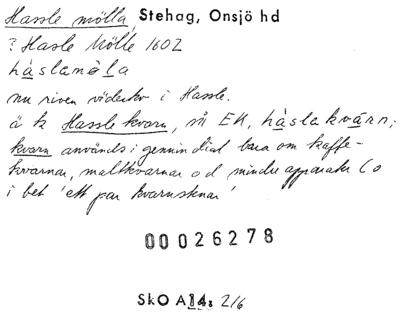 Hassle mölla, Stehag, Onsjö hd
? Hasle Mölle 1602
håslamøla
nu riven väderkv i Hassle.
ä k Hassle kvarn, så EK, håslakvärn;
kvarn används i gennin dial bara om kaffe-
kvarnar, maltkvarnar o d mindre apparater (o
i bet 'ett par kvarnstenar'
00026278
SkO A14: 216